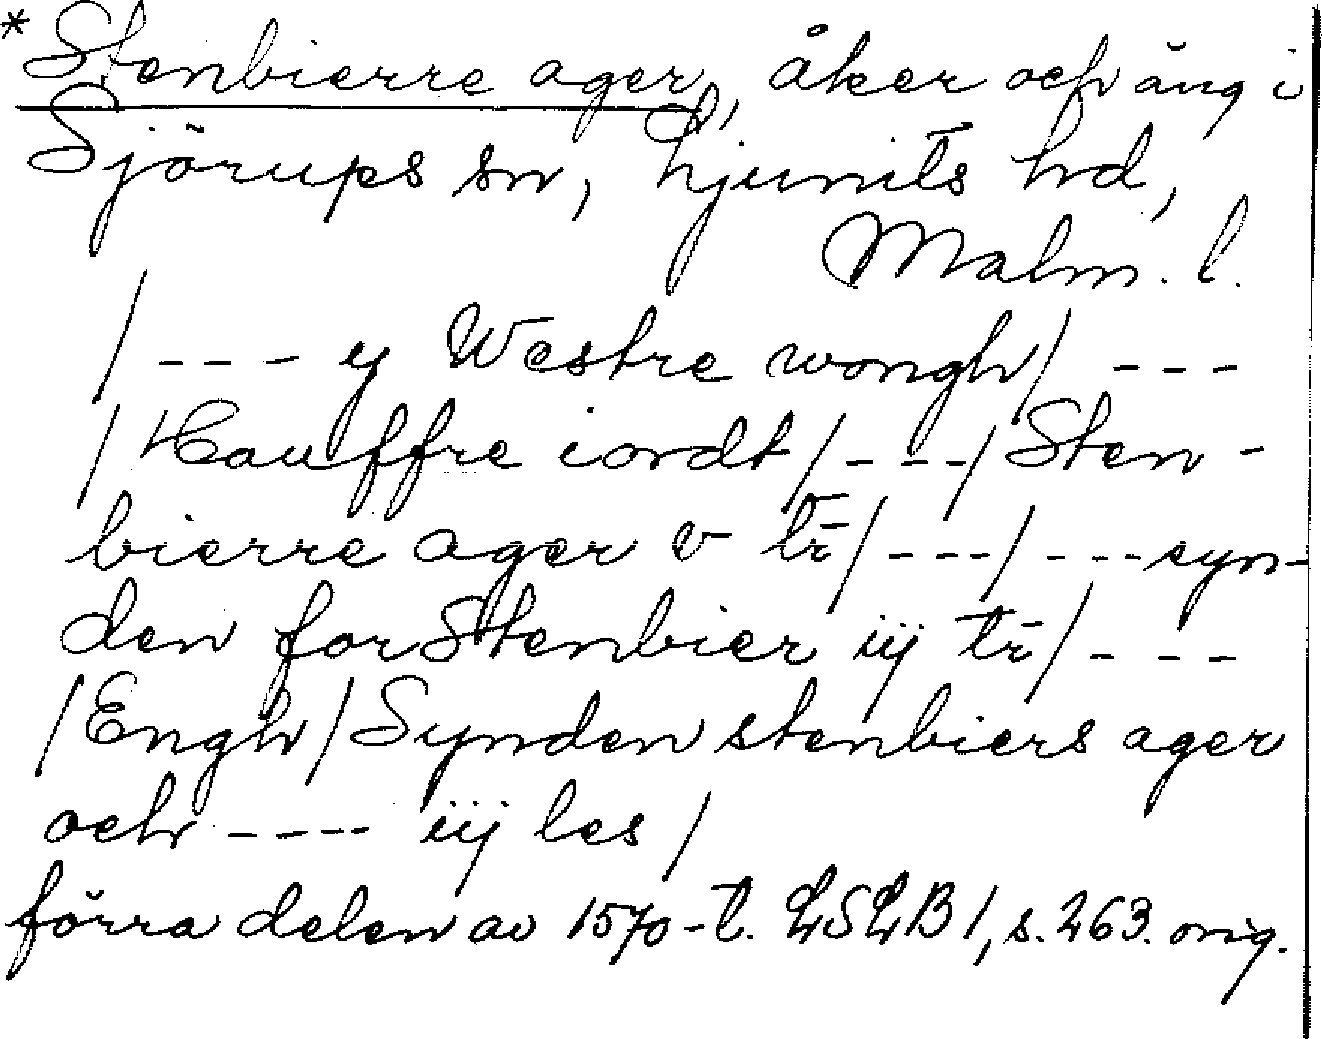 *Stenbierre ager, åker och äng i
Sjörups sn, Ljunits hd,
Malm. l.
/ - - - y Westre wongh / - - -
/ Hauffre iordt / - - - / Sten-
bierre ager v tr̄ / - - - / - - - syn-
den for Stenbier iij tr̄ / - - -
/ Engh / Synden stenbiers ager
och - - - - iij les /
förra delen av 1570-t. LSLB 1, s. 263. orig.